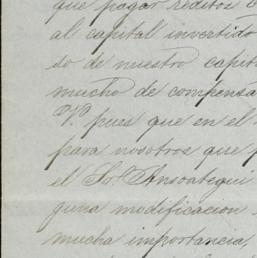 que pagar réditos
al capital invertido
so de nuestro capit
mucho de compensa
V. pues que en el
para nosotros que
el Sor. Ansoategui
guna modificacion
mucha importancia,